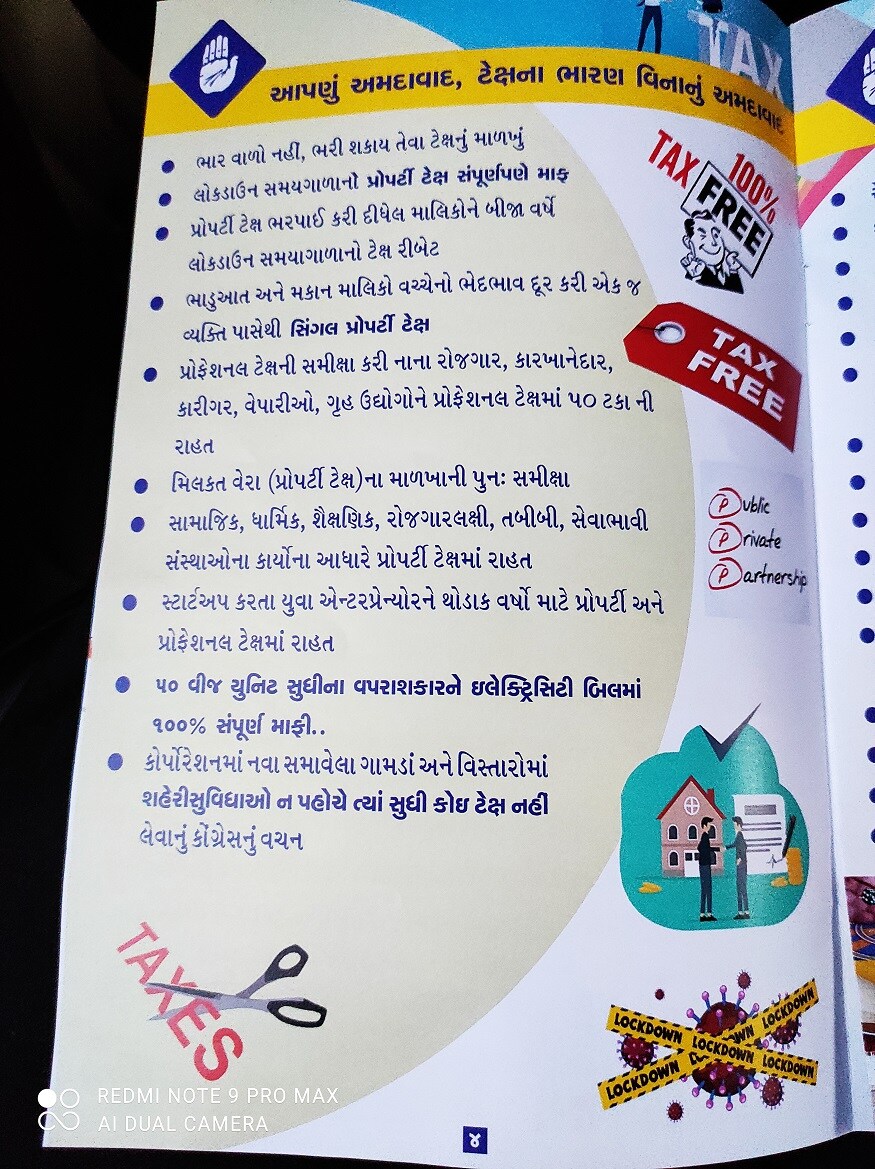 TAX
આપણું અમદાવાદ, ટેક્ષના ભારણ વિનાનું અમદાવાદ
ભાર વાળો નહીં, ભરી શકાય તેવા ટેક્ષનું માળખું
લોકડાઉન સમયગાળાનો પ્રોપર્ટી ટેક્ષ સંપૂર્ણપણે માફ
પ્રોપર્ટી ટેક્ષ ભરપાઈ કરી દીધેલ માલિકોને બીજા વર્ષે
લોકડાઉન સમયાગાળાનો ટેક્ષ રીબેટ
ભાડુઆત અને મકાન માલિકો વચ્ચેનો ભેદભાવ દૂર કરી એક જ
વ્યક્તિ પાસેથી સિંગલ પ્રોપર્ટી ટેક્ષ
પ્રોફેશનલ ટેક્ષની સમીક્ષા કરી નાના રોજગાર, કારખાનેદાર,
કારીગર, વેપારીઓ, ગૃહ ઉદ્યોગોને પ્રોફેશનલ ટેક્ષમાં ૫૦ ટકા ની
રાહત
મિલકત વેરા (પ્રોપર્ટી ટેક્ષ)ના માળખાની પુનઃ સમીક્ષા
સામાજિક, ધાર્મિક, શૈક્ષણિક, રોજગારલક્ષી, તબીબી, સેવાભાવી
સંસ્થાઓના કાર્યોના આધારે પ્રોપર્ટી ટેક્ષમાં રાહત
સ્ટાર્ટઅપ કરતા યુવા એન્ટરપ્રેન્યોરને થોડાક વર્ષો માટે પ્રોપર્ટી અને
પ્રોફેશનલ ટેક્ષમાં રાહત
૫૦ વીજ યુનિટ સુધીના વપરાશકારને ઇલેક્ટ્રિસિટી બિલમાં
૧૦૦% સંપૂર્ણ માફી..
કોર્પોરેશનમાં નવા સમાવેલા ગામડાં અને વિસ્તારોમાં
શહેરીસુવિધાઓ ન પહોચે ત્યાં સુધી કોઇ ટેક્ષ નહીં
લેવાનું કોંગ્રેસનું વચન
TAX 100%
FREE
TAX
FREE
Public
Private
Partnership
TAXES
LOCKDOWN LOCKDOWN LOCKDOWN
LOCKDOWN LOCKDOWN LOCKDOWN
REDMI NOTE 9 PRO MAX
AI DUAL CAMERA
૪